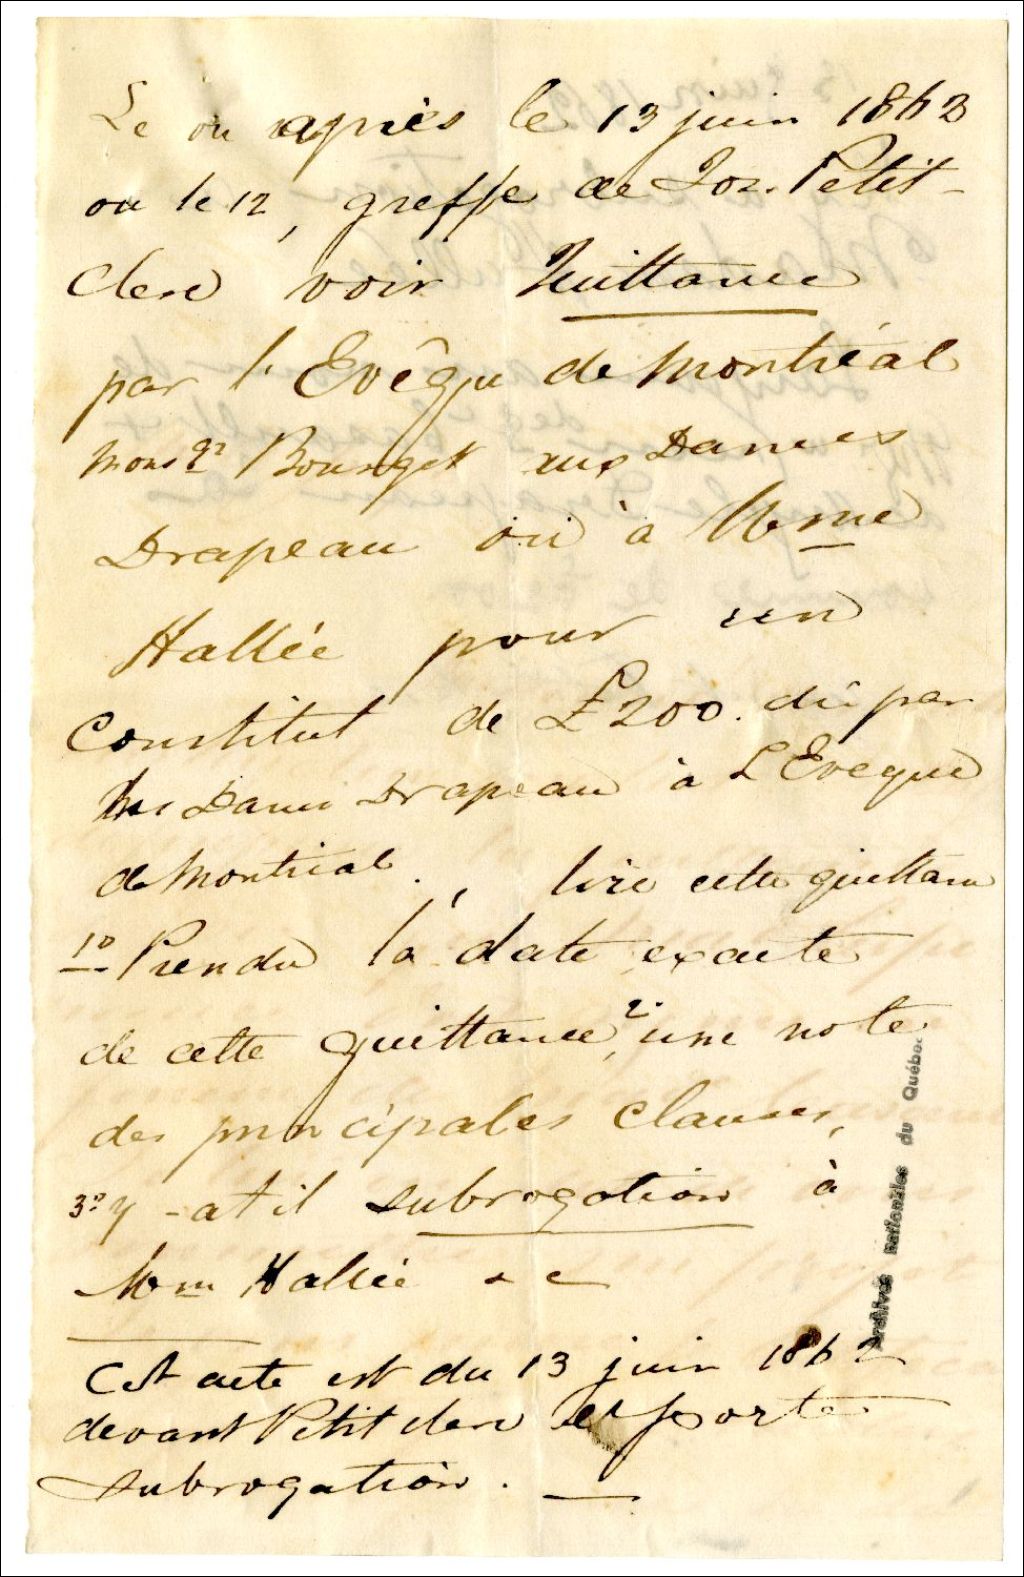 Le ou après le 13 juin 1862
ou le 12, greffe de Jos. Petit-
clerc voir Quittance
par l'Evêque de Montréal
Monsgr Bourget aux Dames
Drapeau ou à Mme
Hallée pour un
Constitut de £200. dû par
les Dames Drapeau à L'Eveque
de Montréal. , lire cette quittance
1o Prendre la date exacte
de cette quittance, 2o une note
des principales clauses,
3o y-at il subrogation à
Mme Hallée &c
Cet acte est du 13 juin 1862
devant Petitclerc et porte
subrogation.
Archives Nationales du Québec